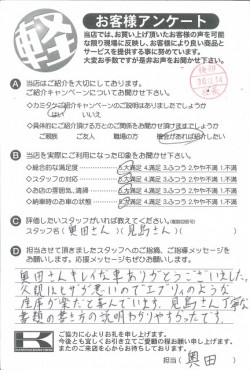 軽
お客様アンケート
当店では、お買い上げ頂いたお客様の声を可能な限り現場に反映し、お客様により良い商品と
サービスを提供する事に努めています。
大変お手数ですが是非お声をお聞かせ下さい。
A 当店はご紹介を大切にしております。
ご紹介キャンペーンについてお聞かせ下さい。
◇カミタケご紹介キャンペーンのご説明はありましたでしょうか
はい いいえ
◇具体的にご紹介頂ける方とのご関係をお聞かせ頂けますでしょうか
ご親族 ご友人 職場の方 機会があれば紹介したい
B 当店を実際にご利用になった印象をお聞かせ下さい。
◇総合的な満足度 5.大満足 4.満足 3.ふつう 2.やや不満 1.不満
◇スタッフの対応 5.大満足 4.満足 3.ふつう 2.やや不満 1.不満
◇お店の雰囲気、清掃 5.大満足 4.満足 3.ふつう 2.やや不満 1.不満
◇納車時のお車の状態 5.大満足 4.満足 3.ふつう 2.やや不満 1.不満
C 評価したいスタッフがいれば教えてください。(複数回答可)
スタッフ名( 奥田さん )( 児島さん )
D 担当させて頂きましたスタッフへのご指摘、ご指導メッセージを
お願いします。応援メッセージもぜひお願いします。
奥田さんキレイな車ありがとうございました。
久規はヒザが悪いのでエブリィのような
座席が楽だと喜んでいます。児島さん丁寧な
書類の書き方の説明わかりやすかったです。
K
ご協力に心よりお礼を申し上げます。
今後とも宜しくお引き立てご愛顧の程お願い申し上げます。
またのご来店を心からお待ちしております。
担当( 奥田 )